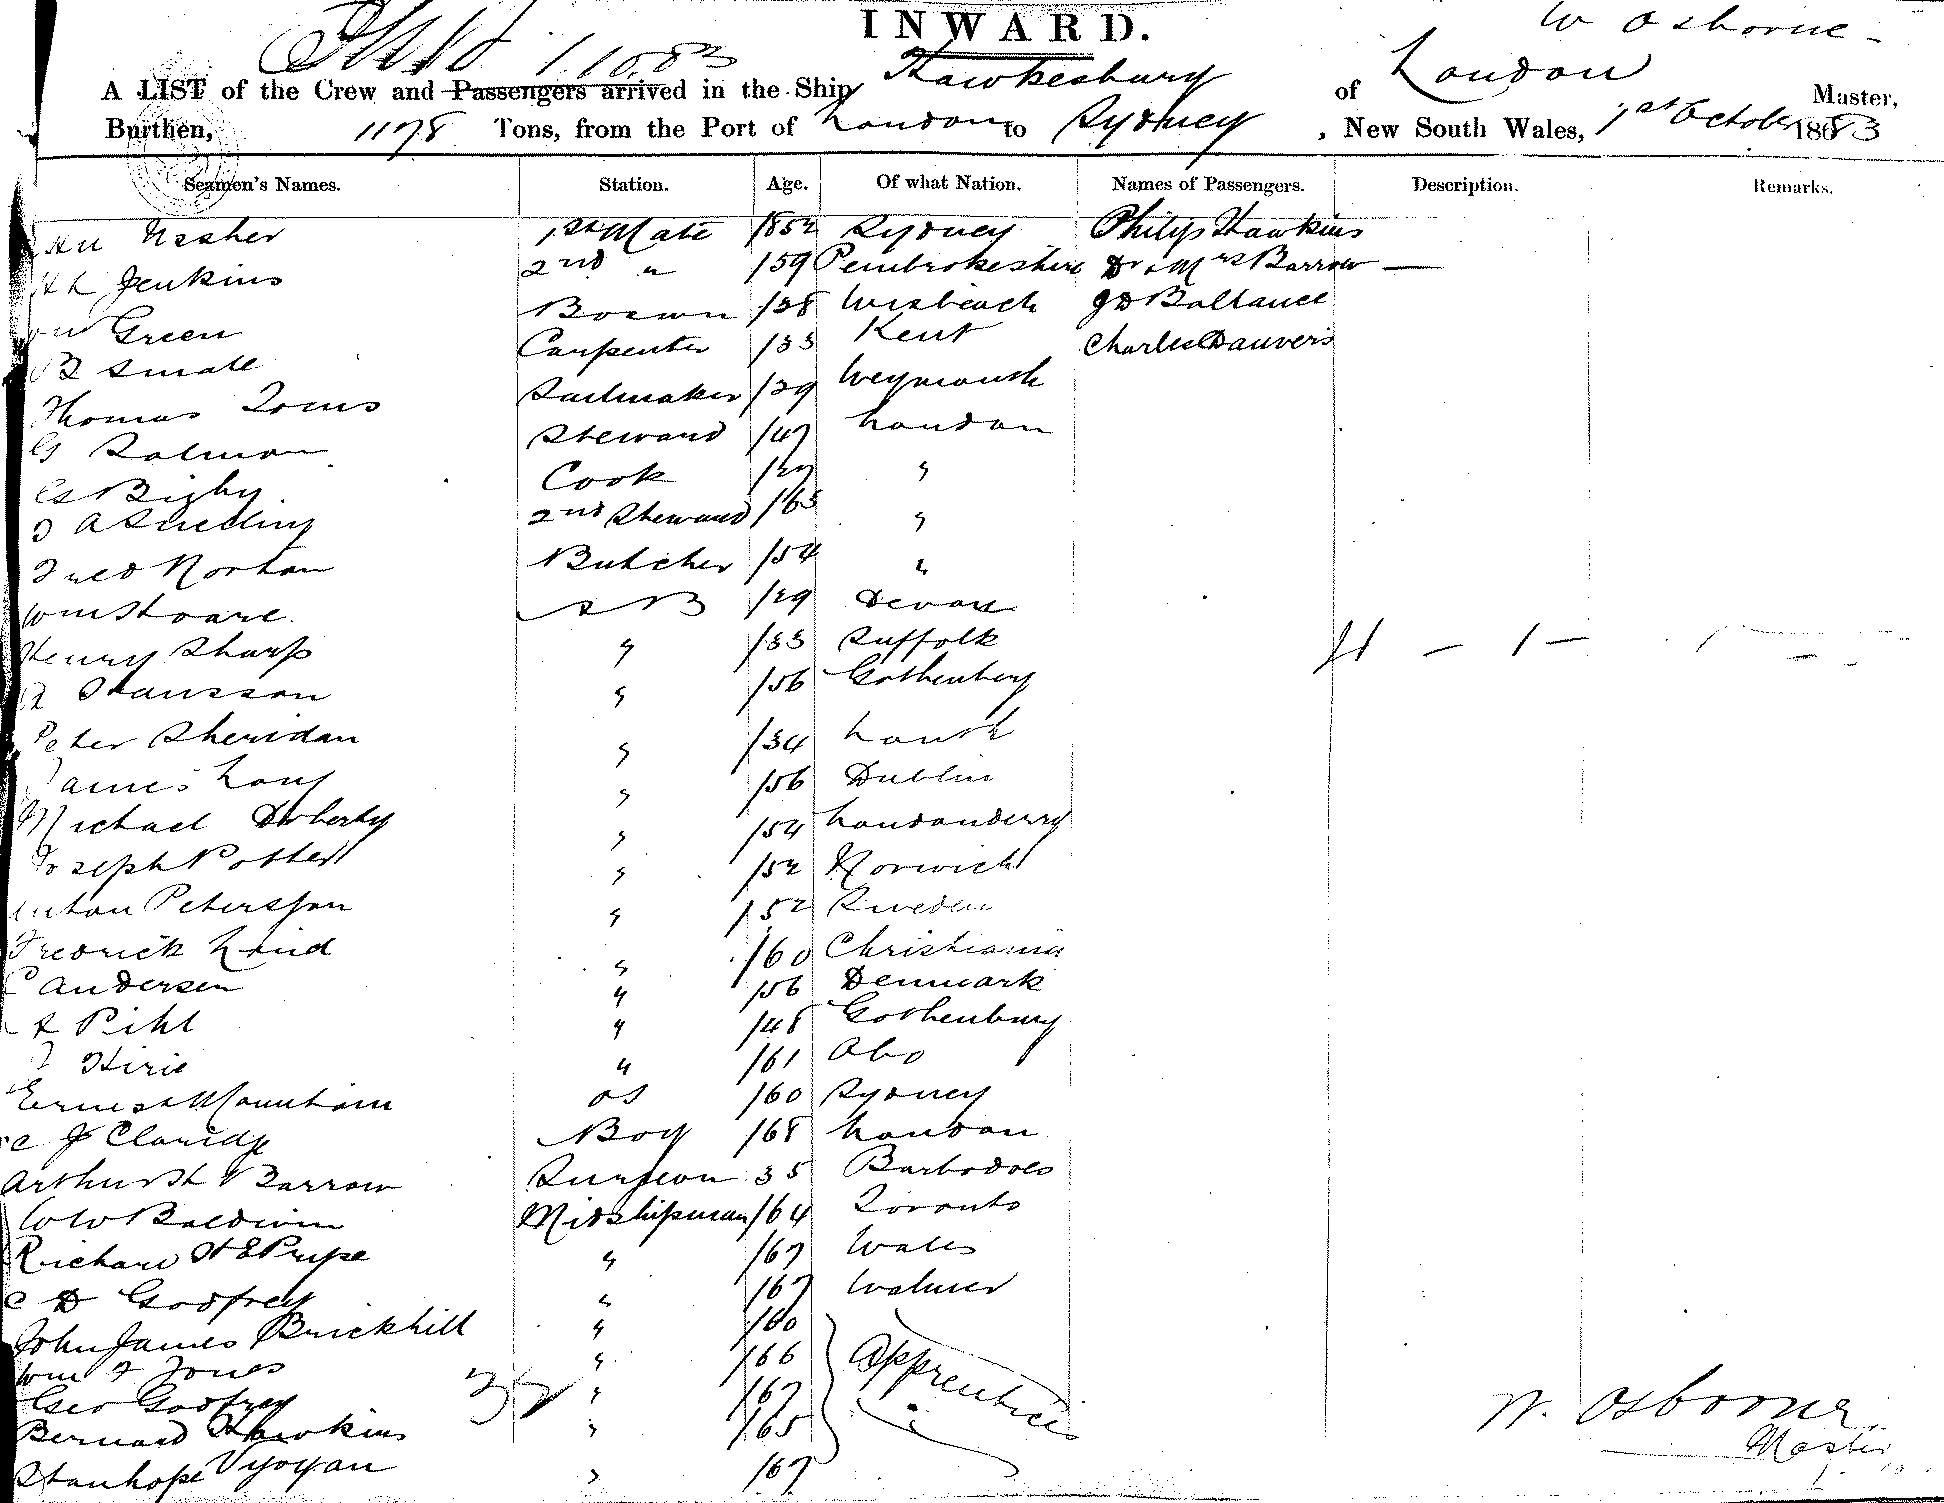 INWARD.
W Osborne
A LIST of the Crew and Passengers arrived in the Ship Hawkesbury of London Master,
Burthen, 1178 Tons, from the Port of London to Sydney, New South Wales, 1st October 1883
Seamen's Names. Station. Age. Of what Nation. Names of Passengers. Description. Remarks.
1st Mate 1852 Sydney Philip Hawkins
Jenkins 2nd " /59 Pembrokeshire Dr & Mrs Barrow
Green Bosun /38 Wisbeach J D Ballance
B Small Carpenter /33 Kent Charles Danvers
Thomas Toms Sailmaker /39 Weymouth
G Salmon Steward /47 London
Bigby Cook "
A Snelling 2nd Steward /65 "
Fred Norton Butcher /54 "
Wm Hoare AB /29 Devon
Henry Sharp " /33 Suffolk
Hansson " /56 Gothenberg
Peter Sheridan " /34 Louth
James Long " /56 Dublin
Michael Doherty " /54 Londonderry
Joseph Potter " /52 Norwich
Anton Petersson " /52 Sweden
Fredrick Lind " /60 Christiania
C Andersen " /56 Denmark
Pihl " /48 Gothenburg
Hirie " /61 Abo
Ernest Mountain OS /60 Sydney
J Claridge Boy /68 London
Arthur St V Barrow Surgeon 35 Barbadoes
W W Baldwin Midshipman /64 Toronto
Richard H E Pripe " /67 Wales
C D Godfrey " /67 Walmer
John James Brickhill " /60
Wm F Jones " /66 Apprentices
Geo Godfrey " /67
Bernard Hawkins " /65
Stanhope Vyvyan " /67
W. Osborne
Master